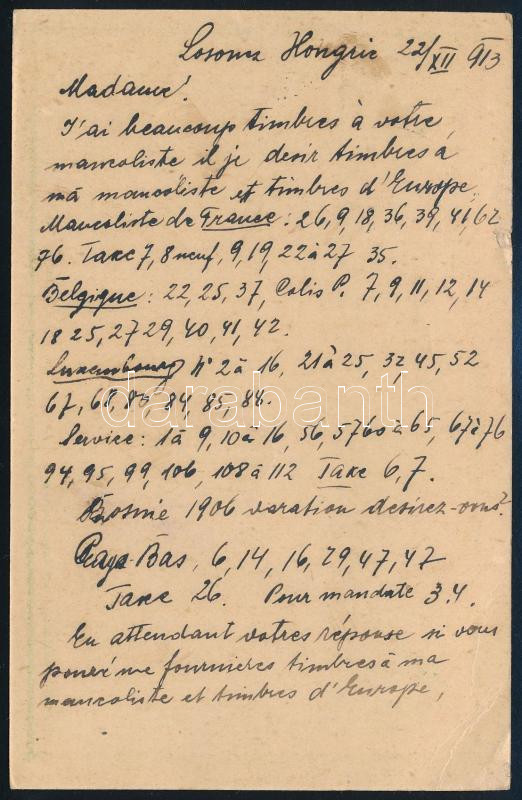 Losonez Hongrie 22/XII 913
Madame!
J'ai beaucoup timbres à votre
mancoliste il je desir timbres à
mà mancoliste et timbres d'Europe,
Mancoliste de France: 26, 9, 18, 36, 39, 41, 62
96. Taxe 7, 8 neuf, 9, 19, 22 à 27 35.
Belgique: 22, 25, 37, Colis P. 7, 9, 11, 12, 14
18 25, 27 29, 40, 41, 42.
Luxembourg No 2 à 16, 21 à 25, 32, 45, 52
67, 68, 84, 85, 88.
darabanth
Service: 1 à 9, 10 à 16, 56, 57 60 à 65, 67 à 76
94, 95, 99, 106, 108 à 112 Taxe 6, 7.
Bosnie 1906 varation desirez-vous?
Paya-Bas, 6, 14, 16, 29, 47, 47
Taxe 26. Pour mandate 3.4.
En attendant votres réponse si vous
pouvé me fournieres timbres à ma
mancoliste et timbres d'Europe,